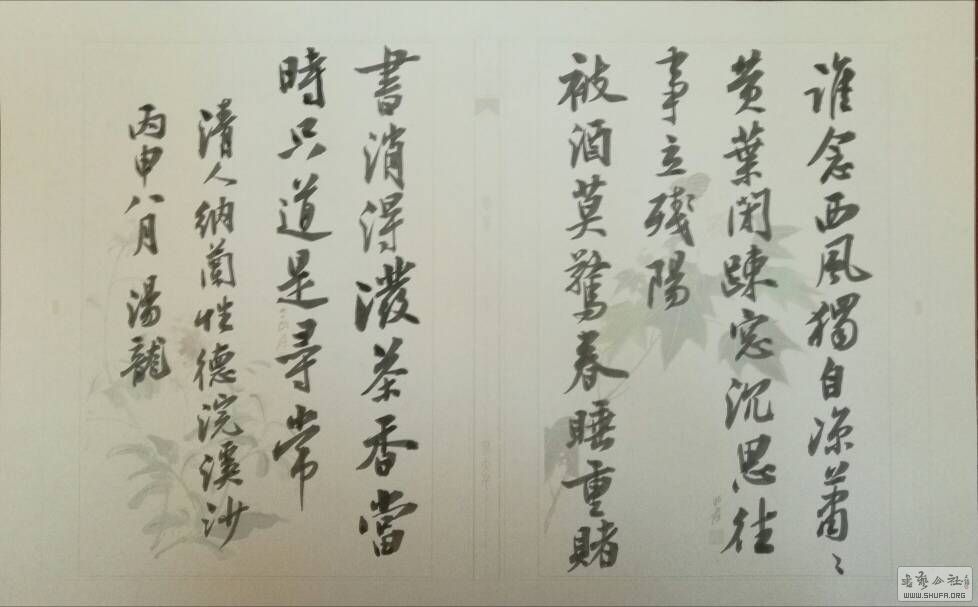 誰念西風獨自凉蕭〻
黄葉閉踈窓沉思往
事立残陽
被酒莫驚春睡重賭
書消得潑茶香當
時只道是尋常
清人納蘭性德浣溪沙
丙申八月湯龍
WWW.SHUFA.ORG